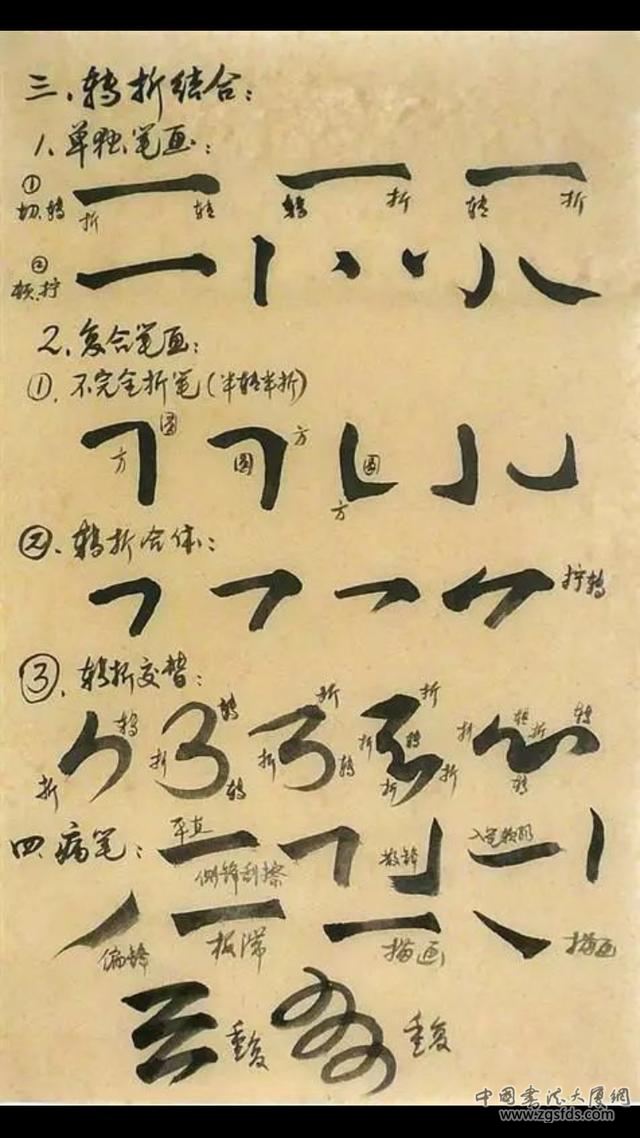 三、转折结合：
1、单独笔画：
①
切、转 折 转 转 折 转 折
②
顿、拧
2、复合笔画：
①、不完全折笔（半转半折）
方 圆 圆 方 圆 方
②、转折合体：
拧转
③、转折交替：
折 转 折 转 转 折 折 转 折 折 转 折 折 折 转 折 转 转
四、病笔：
平直 侧锋刮擦 散锋
偏锋 板滞 描画 描画
重复 重复
中国书法大厦網
www.zgsfds.com